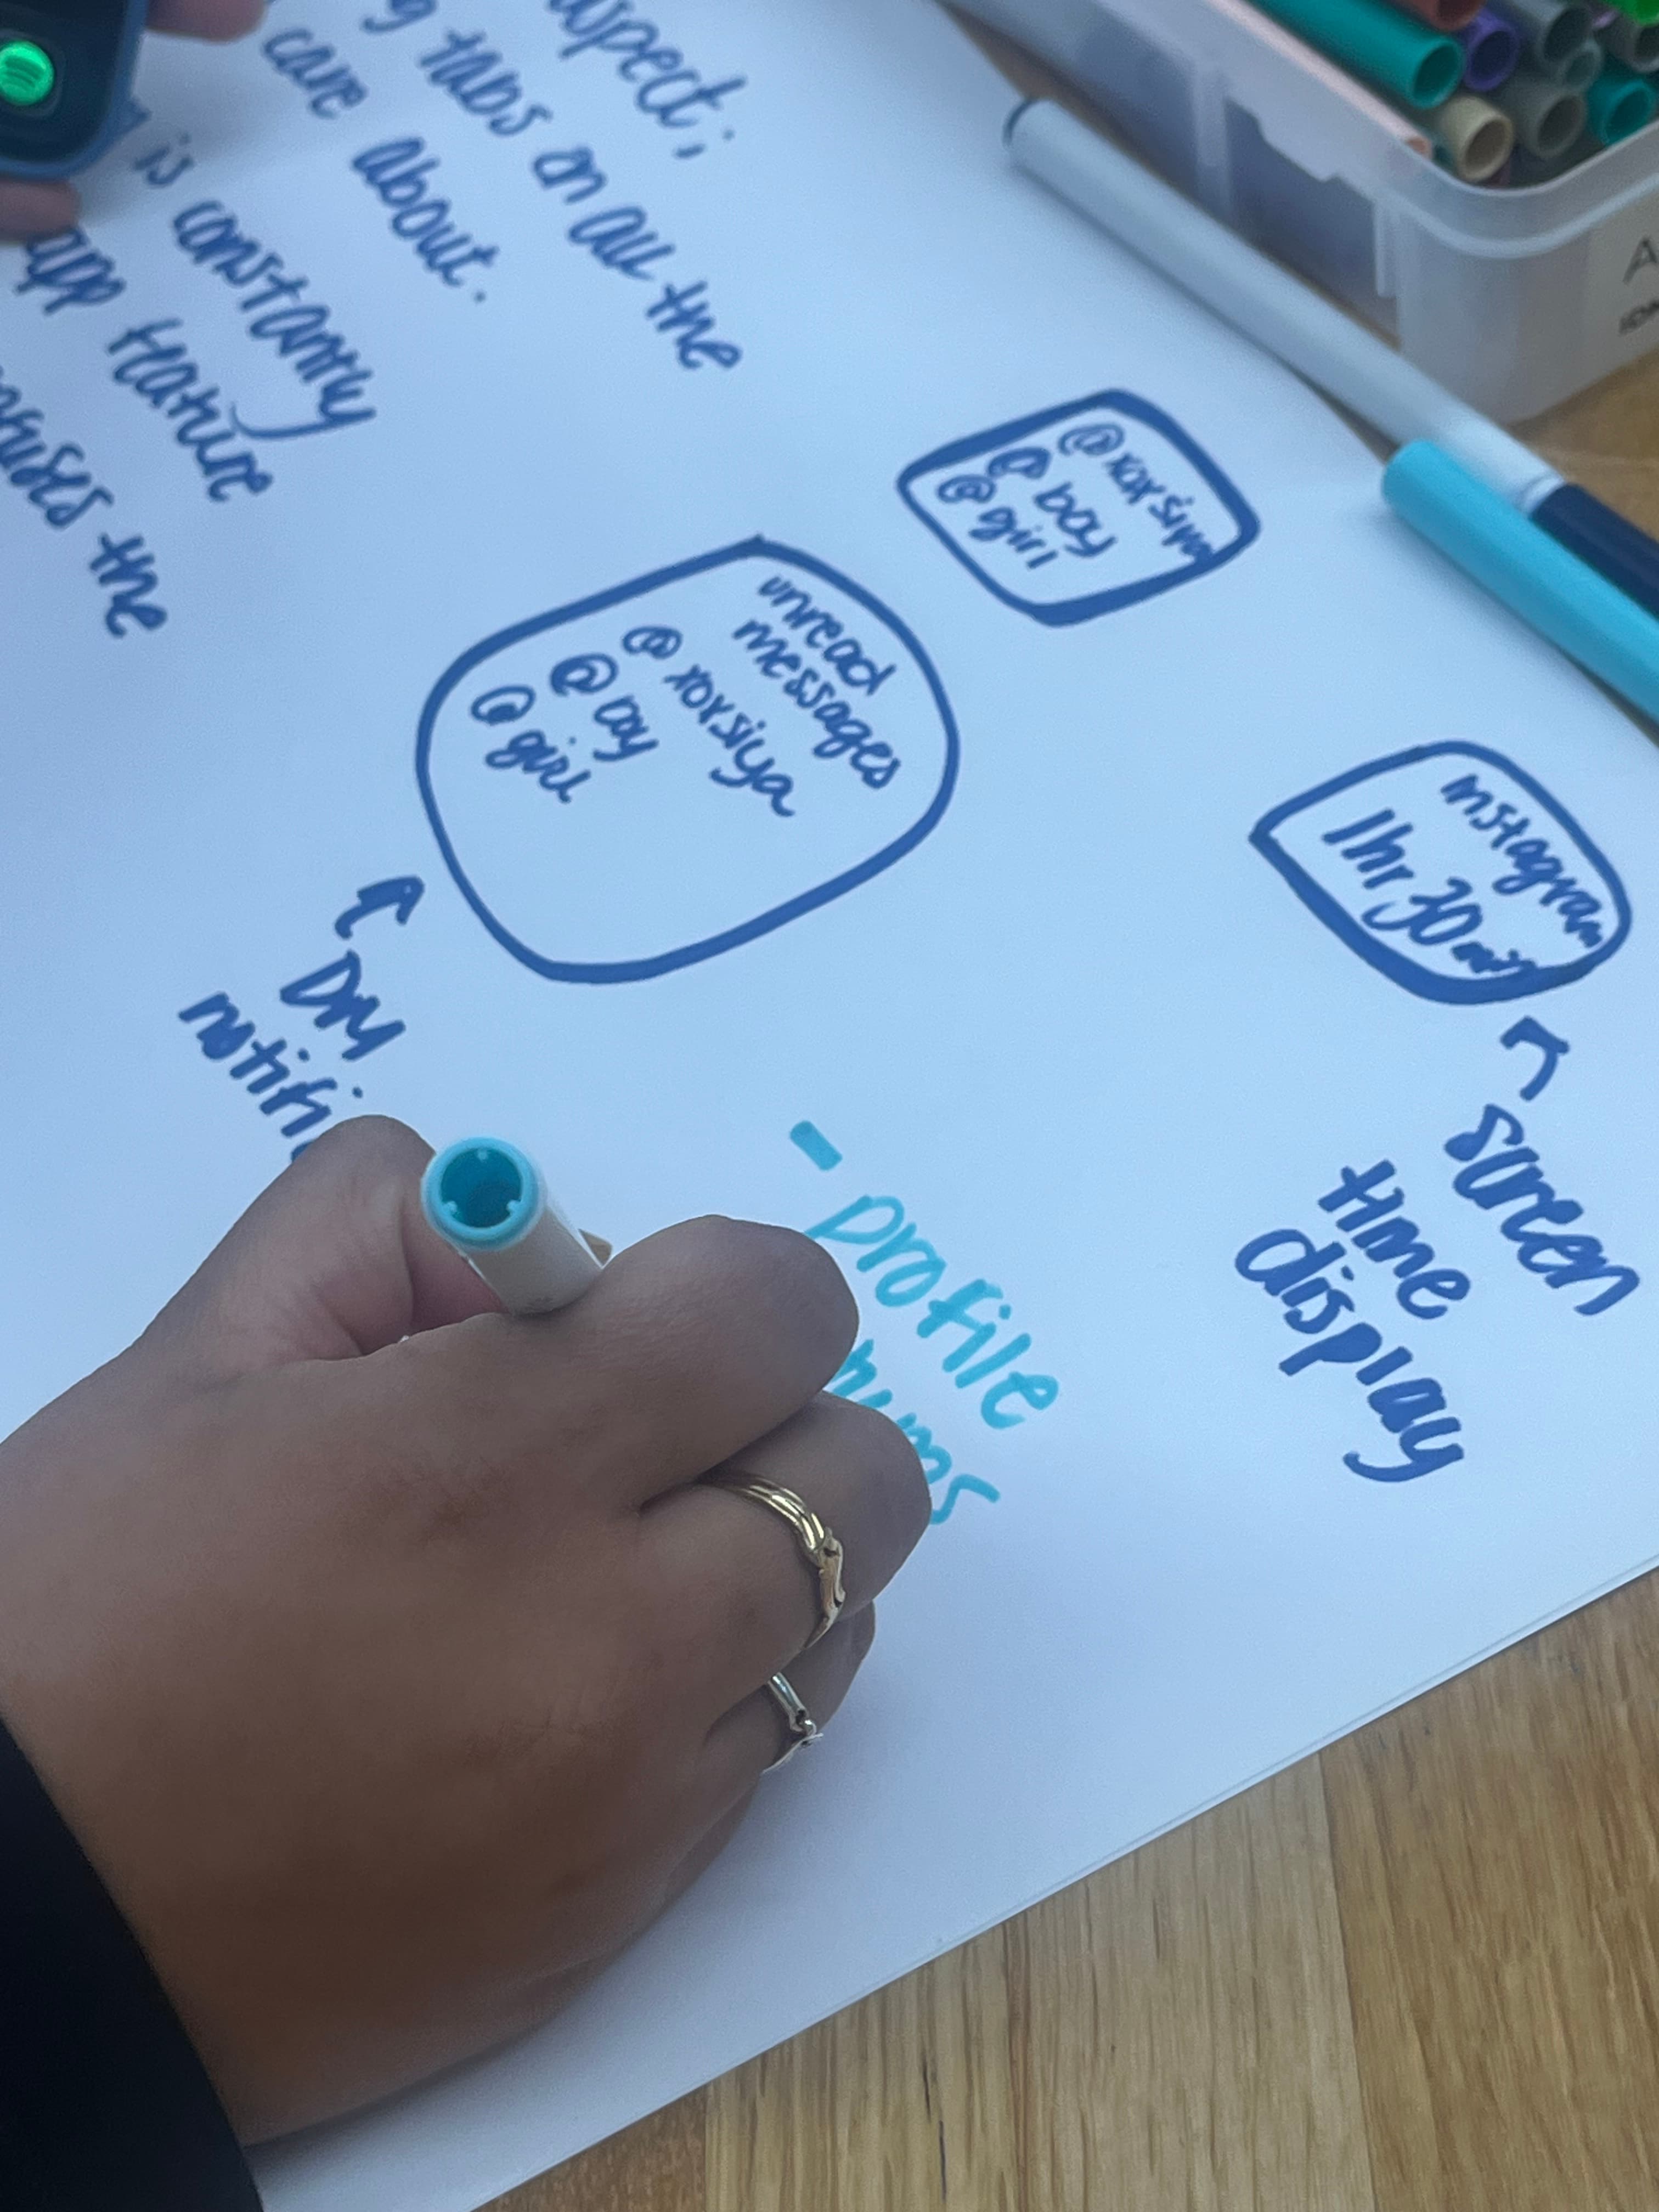 aspect;
g tabs on all the
care about.
is constantly
app feature
the
@xoxsiya
@boy
@girl
unread
messages
@xoxsiya
@boy
@girl
DM
notifi
instagram
1hr 30min
screen
time
display
- profile